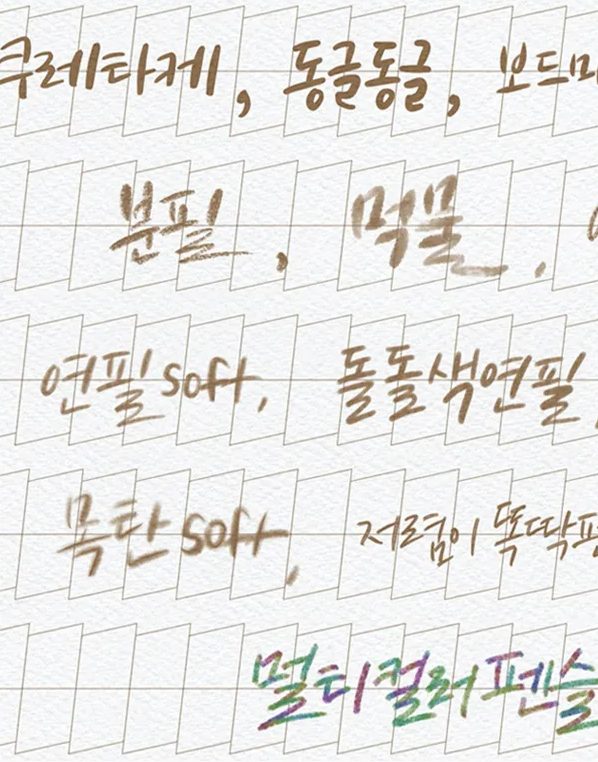 쿠레타케, 동글동글, 보드마
분필, 먹물,
연필 soft, 돌돌색연필,
목탄 soft,
저렴이 똑딱펜
멀티컬러펜슬